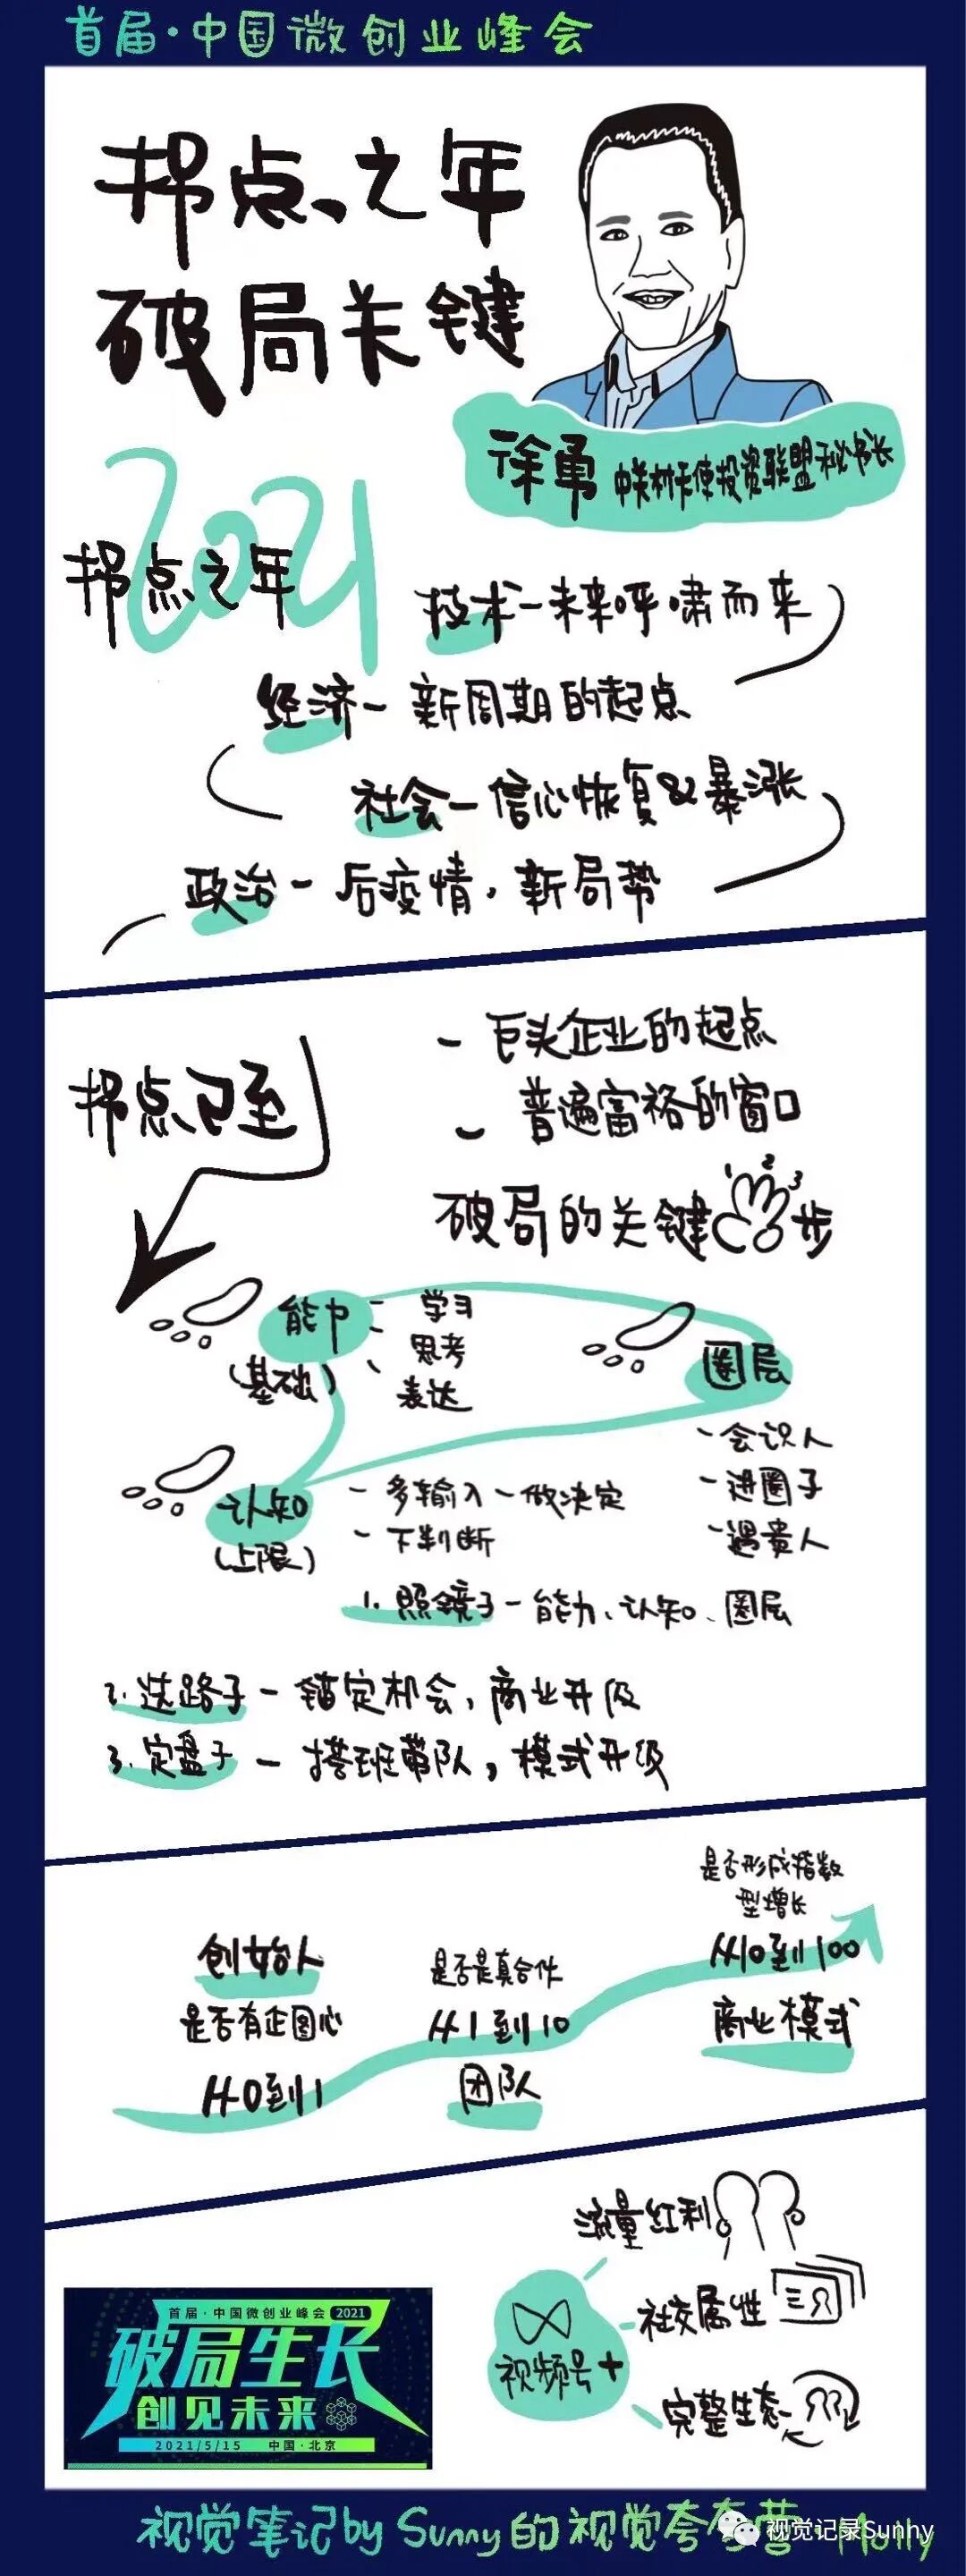 首届·中国微创业峰会
拐点之年
破局关键
徐勇 中关村天使投资联盟秘书长
2021
拐点之年
技术－未来呼啸而来
经济－新周期的起点
社会－信心恢复&暴涨
政治－后疫情，新局势
拐点已至
- 巨头企业的起点
- 普遍富裕的窗口
破局的关键 1 2 3 步
能力
(基础)
- 学习
- 思考
- 表达
圈层
- 会识人
- 进圈子
- 遇贵人
认知
(上限)
- 多输入 - 做决定
- 下判断
1. 照镜子－能力、认知、圈层
2. 选路子－锚定机会，商业升级
3. 定盘子－搭班带队，模式升级
创始人
是否有企图心
从0到1
是否是真合伙
从1到10
团队
是否形成指数
型增长
从10到100
商业模式
流量红利
社交属性
视频号+
完整生态
首届·中国微创业峰会 2021
破局生长
创见未来
2021/5/15 中国·北京
视觉笔记by Sunny的视觉夸夸营 Molly
视觉记录Sunhy